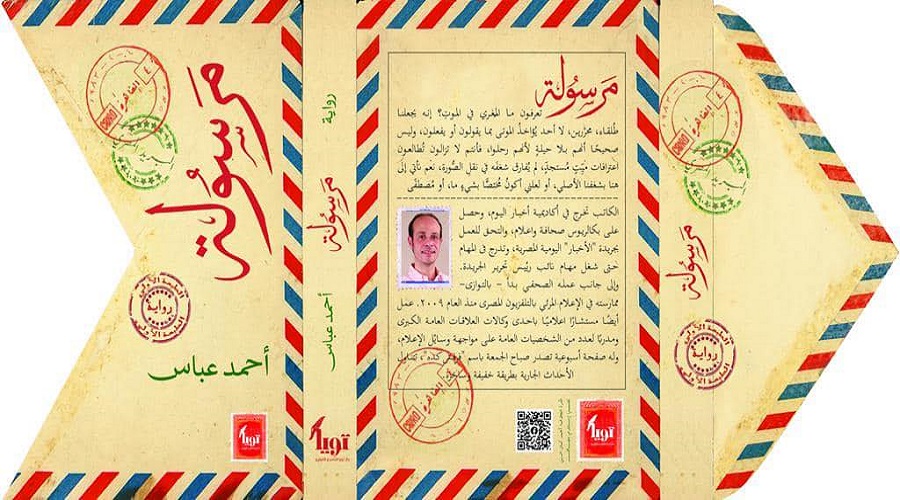 مرسولة
أحمد عباس
رواية
الطبعة الأولى
القاهرة
تويا
رواية
مرسولة
أحمد عباس
تويا
مَرسِولة
تعرفون ما المغري في الموت؟ إنه يجعلنا
طلقاء، محرَّرين، لا أحد يُؤاخِذُ الموتى بما يقولون أو يفعلون، وليس
صحيحًا أنهم بلا حيلةٍ لأنهم رحلوا، فأنتم لا تزالون تُطالعون
اعترافات ميِّتٍ مُستجدٍّ، لم يُفارق شغفه في نقل الصُّورة، نعم نأتي إلى
هنا بشغفنا الأصلي، أو لعلني أكونُ مُختصًّا بشيءٍ ما، أو مُصطفًى
الكاتب تخرج في أكاديمية أخبار اليوم، وحصل
على بكالريوس صحافة وإعلام، والتحق للعمل
بجريدة "الأخبار" اليومية المصرية، وتدرج في المهام
حتى شغل مهام نائب رئيس تحرير الجريدة.
وإلى جانب عمله الصحفي بدأ – بالتوازي-
ممارسته في الإعلام المرئي بالتلفزيون المصرى منذ العام ٢٠٠٩. عمل
أيضًا مستشارًا اعلاميًا باحدى وكالات العلاقات العامة الكبرى
ومدربًا لعدد من الشخصيات العامة على مواجهة وسائل الإعلام،
وله صفحة أسبوعية تصدر صباح الجمعة باسم
تتناول
الأحداث الجارية بطريقة خفيفة
القاهرة
تويا
مرسولة
القاهرة
الطبعة الأولى
رواية
الطبعة الأولى